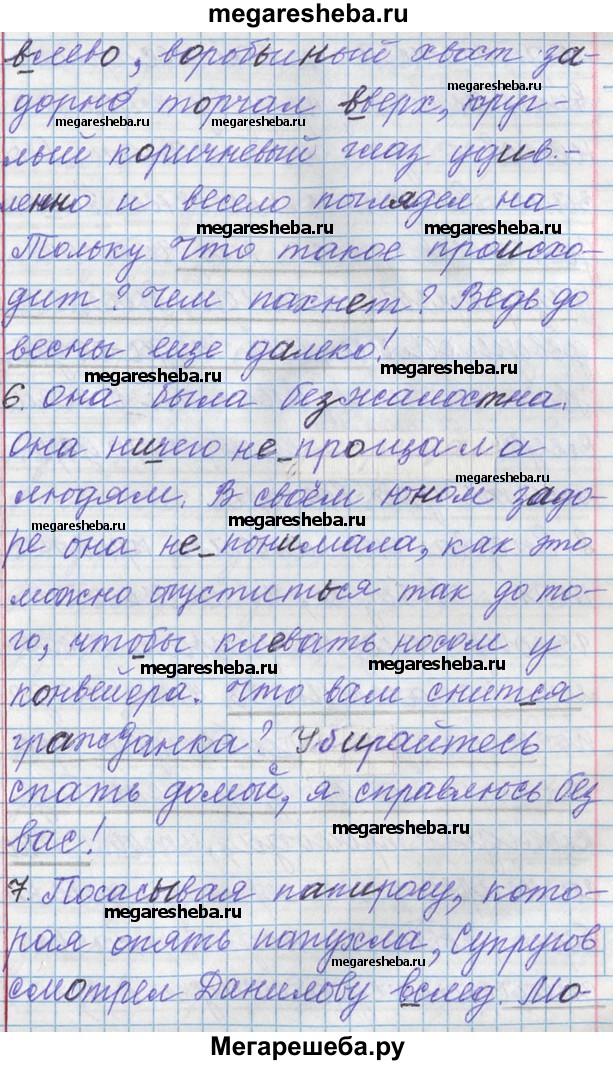 megaresheba.ru
влево, воробьиный хвост за-
megaresheba.ru
дорно торчал вверх, круг-
megaresheba.ru megaresheba.ru
лый коричневый глаз удив.-
ленно и весело поглядел на
megaresheba.ru megaresheba.ru
Тольку Что такое происхо-
дит? Чем пахнет? Ведь до
весны еще далеко!
megaresheba.ru megaresheba.ru
6. Она была безжалостна.
Она ничего не_прощала
megaresheba.ru
людям. В своём юном задо-
megaresheba.ru
ре она не_понимала, как это
можно опуститься так до то-
го, чтобы клевать носом у
megaresheba.ru megaresheba.ru
конвейера. Что вам снится
гражданка? Убирайтесь
спать домой, я справлюсь без
megaresheba.ru
вас!
7. Посасывая папиросу, кото-
megaresheba.ru
рая опять потухла, Супругов
megaresheba.ru
смотрел Данилову вслед. Мо-
Мегарешеба.ру